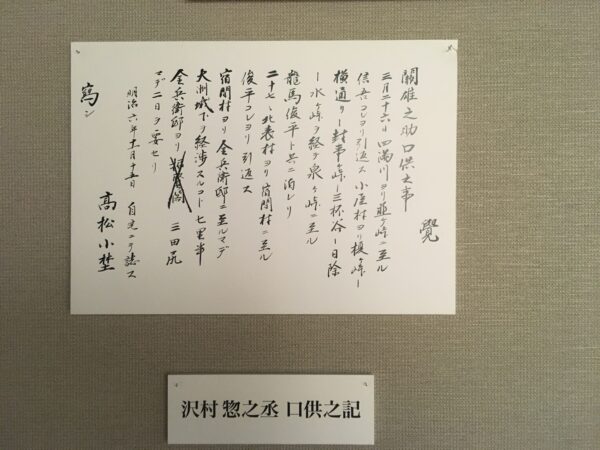 覺
關雄之助口供之事
三月二十六日 四満川ヨリ韮ヶ峠ニ至ル
信吾コレヨリ引返ス 小屋村ヨリ榎ヶ峠ー
横通リー封事ヶ峠ー三杯谷ー日除
ー水ヶ峠ヲ経テ泉ヶ峠ニ至ル
龍馬俊平ト共ニ泊レリ
二十七、北表村ヨリ宿間村ニ至ル
俊平コレヨリ引返ス
宿間村ヨリ金兵衛邸ニ至ルマデ
大洲城下ヲ経渉スルコト七里半
金兵衛邸ヨリ 三田尻
マデ二日ヲ要セリ
明治六年十一月十五日 自宅ニテ誌ス
高松小埜
寫シ
沢村 惣之丞 口供之記